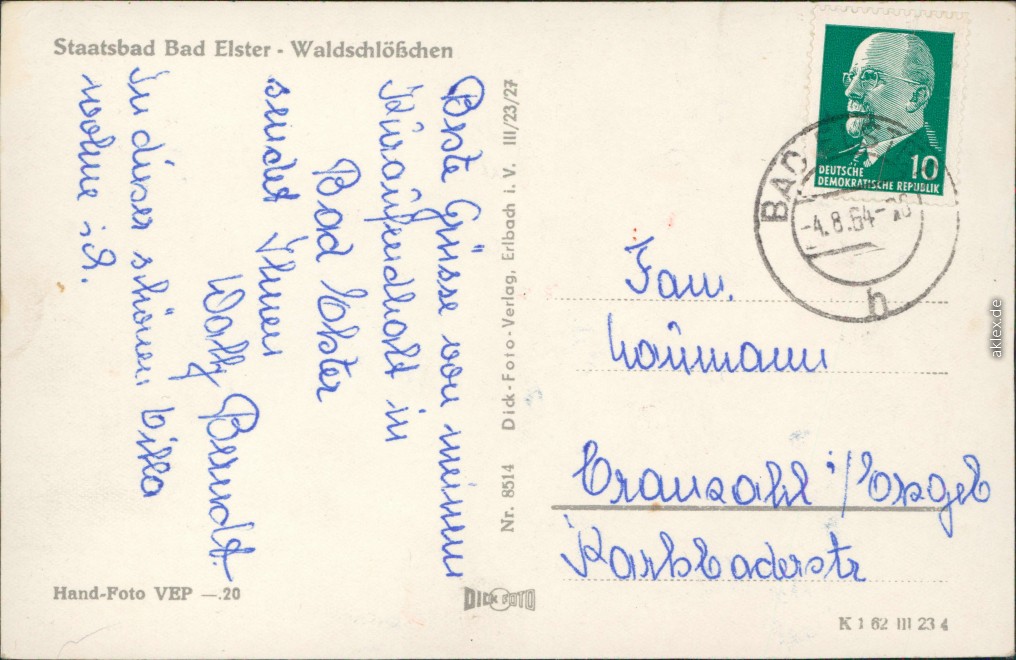 Staatsbad Bad Elster - Waldschlößchen
Beste Grüsse von meinem
Kuraufendhalt in
Bad Elster
sendet Ihnen
Wally Berndt.
In dieser schönen Villa
wohne ich.
Hand-Foto VEP —.20
Nr. 8514 Dick-Foto-Verlag, Erlbach i. V. III/23/27
DICK FOTO
DEUTSCHE
DEMOKRATISCHE REPUBLIK
10
BAD ELSTER
-4.8.64-
h
Fam.
Naumann
Cranzahl i/Erzgeb
Karlsbaderstr
K 1 62 III 23 4
aklex.de